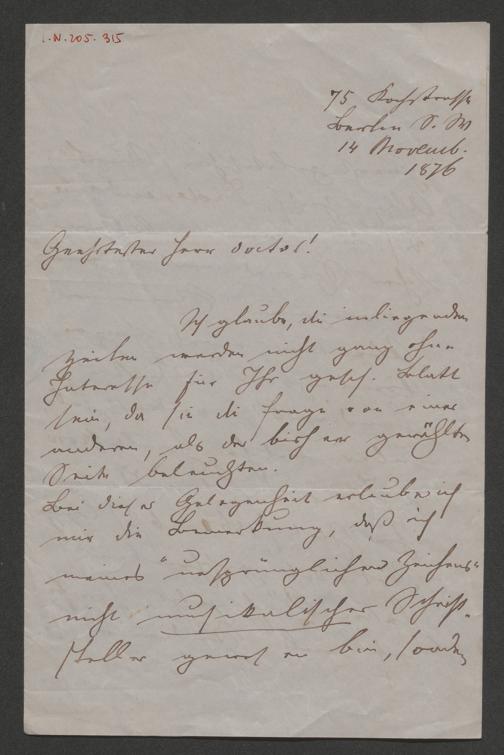 I.N.205.315
75 Kochstrasse
Berlin S. W
14 Novemb.
1876
Geehrtester Herr Doctor!
Ich glaube, die inliegenden
Zeilen werden nicht ganz ohne
Interesse für Ihr gesch. Blatt
sein, da sie die Frage von einer
anderen, als der bisher gewählten
Seite beleuchten.
Bei dieser Gelegenheit erlaube ich
mir die Bemerkung, daß ich
meines "ursprünglichen Zeichens"
nicht musikalischer Schrift-
steller gewesen bin, sondern